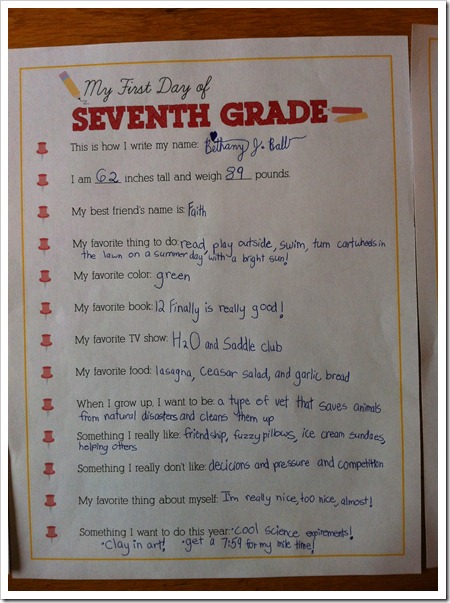 My First Day of
SEVENTH GRADE
This is how I write my name: Bethany J. Ball
I am 62 inches tall and weigh 89 pounds.
My best friend's name is: Faith
My favorite thing to do: read, play outside, swim, turn cartwheels in
the lawn on a summer day with a bright sun!
My favorite color: green
My favorite book: 12 Finally is really good!
My favorite TV show: H2O and Saddle club
My favorite food: lasagna, ceasar salad, and garlic bread
When I grow up, I want to be: a type of vet that saves animals
from natural disasters and cleans them up
Something I really like: friendship, fuzzy pillows, ice cream sundaes,
helping others
Something I really don't like: decicions and pressure and competition
My favorite thing about myself: I'm really nice, too nice, almost!
Something I want to do this year: •cool science expirements!
•Clay in art! •get a 7:59 for my mile time!